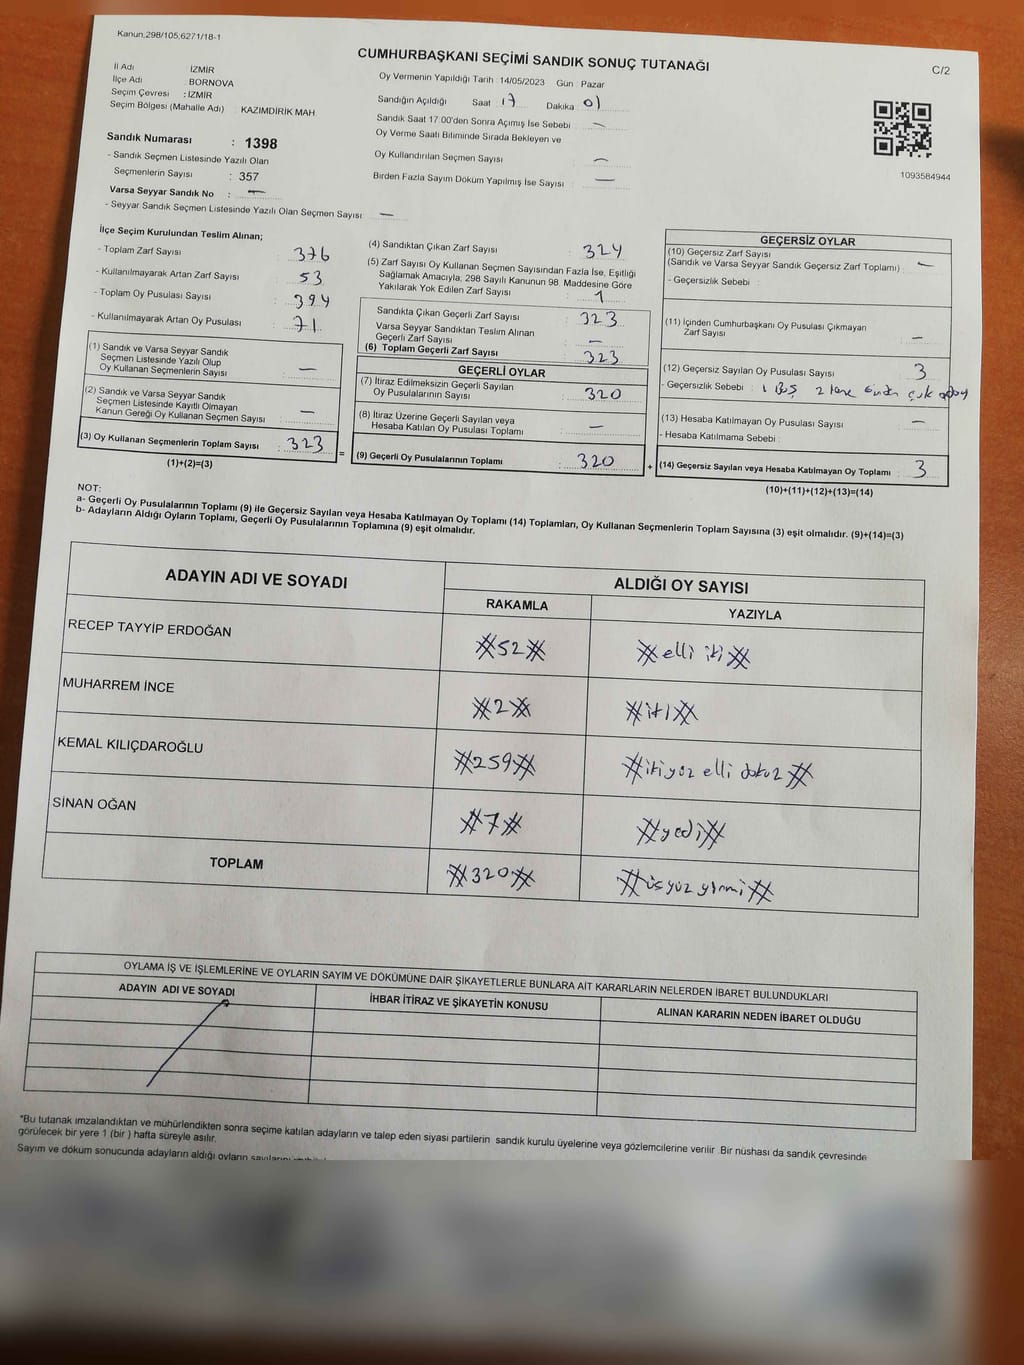 Kanun,298/105,6271/18-1
CUMHURBAŞKANI SEÇİMİ SANDIK SONUÇ TUTANAĞI
C/2
İl Adı İZMİR
İlçe Adı : BORNOVA
Seçim Çevresi : İZMİR
Seçim Bölgesi (Mahalle Adı) KAZIMDİRİK MAH.
Oy Vermenin Yapıldığı Tarih : 14/05/2023 Gün : Pazar
Sandığın Açıldığı Saat 17 Dakika 01
Sandık Saat 17.00'den Sonra Açımış İse Sebebi : —
Oy Verme Saati Bitiminde Sırada Bekleyen ve
Oy Kullandırılan Seçmen Sayısı : —
Birden Fazla Sayım Döküm Yapılmış İse Sayısı : —
1093584944
Sandık Numarası : 1398
- Sandık Seçmen Listesinde Yazılı Olan
Seçmenlerin Sayısı : 357
Varsa Seyyar Sandık No : —
- Seyyar Sandık Seçmen Listesinde Yazılı Olan Seçmen Sayısı : —
İlçe Seçim Kurulundan Teslim Alınan;
- Toplam Zarf Sayısı : 376
- Kullanılmayarak Artan Zarf Sayısı : 53
- Toplam Oy Pusulası Sayısı : 394
- Kullanılmayarak Artan Oy Pusulası : 71
(1) Sandık ve Varsa Seyyar Sandık
Seçmen Listesinde Yazılı Olup
Oy Kullanan Seçmenlerin Sayısı : —
(2) Sandık ve Varsa Seyyar Sandık
Seçmen Listesinde Kayıtlı Olmayan
Kanun Gereği Oy Kullanan Seçmen Sayısı : —
(3) Oy Kullanan Seçmenlerin Toplam Sayısı : 323
(1)+(2)=(3)
=
(4) Sandıktan Çıkan Zarf Sayısı : 324
(5) Zarf Sayısı Oy Kullanan Seçmen Sayısından Fazla İse, Eşitliği
Sağlamak Amacıyla, 298 Sayılı Kanunun 98. Maddesine Göre
Yakılarak Yok Edilen Zarf Sayısı : 1
Sandıkta Çıkan Geçerli Zarf Sayısı : 323
Varsa Seyyar Sandıktan Teslim Alınan
Geçerli Zarf Sayısı : —
(6) Toplam Geçerli Zarf Sayısı : 323
GEÇERLİ OYLAR
(7) İtiraz Edilmeksizin Geçerli Sayılan
Oy Pusulalarının Sayısı : 320
(8) İtiraz Üzerine Geçerli Sayılan veya
Hesaba Katılan Oy Pusulası Toplamı : —
(9) Geçerli Oy Pusulalarının Toplamı : 320
+
GEÇERSİZ OYLAR
(10) Geçersiz Zarf Sayısı
(Sandık ve Varsa Seyyar Sandık Geçersiz Zarf Toplamı) : —
- Geçersizlik Sebebi :
(11) İçinden Cumhurbaşkanı Oy Pusulası Çıkmayan
Zarf Sayısı : —
(12) Geçersiz Sayılan Oy Pusulası Sayısı : 3
- Geçersizlik Sebebi : 1 Boş 2 tane
(13) Hesaba Katılmayan Oy Pusulası Sayısı : —
- Hesaba Katılmama Sebebi :
(14) Geçersiz Sayılan veya Hesaba Katılmayan Oy Toplamı : 3
(10)+(11)+(12)+(13)=(14)
NOT:
a- Geçerli Oy Pusulalarının Toplamı (9) ile Geçersiz Sayılan veya Hesaba Katılmayan Oy Toplamı (14) Toplamları, Oy Kullanan Seçmenlerin Toplam Sayısına (3) eşit olmalıdır. (9)+(14)=(3)
b- Adayların Aldığı Oyların Toplamı, Geçerli Oy Pusulalarının Toplamına (9) eşit olmalıdır.
ADAYIN ADI VE SOYADI
ALDIĞI OY SAYISI
RAKAMLA YAZIYLA
RECEP TAYYİP ERDOĞAN #52# #elli iki#
MUHARREM İNCE #2# #iki#
KEMAL KILIÇDAROĞLU #259# #ikiyüz elli dokuz#
SİNAN OĞAN #7# #yedi#
TOPLAM #320# #üsyüz yirmi#
OYLAMA İŞ VE İŞLEMLERİNE VE OYLARIN SAYIM VE DÖKÜMÜNE DAİR ŞİKAYETLERLE BUNLARA AİT KARARLARIN NELERDEN İBARET BULUNDUKLARI
ADAYIN ADI VE SOYADI İHBAR İTİRAZ VE ŞİKAYETİN KONUSU ALINAN KARARIN NEDEN İBARET OLDUĞU
*Bu tutanak imzalandıktan ve mühürlendikten sonra seçime katılan adayların ve talep eden siyasi partilerin sandık kurulu üyelerine veya gözlemcilerine verilir. Bir nüshası da sandık çevresinde
görülecek bir yere 1 (bir ) hafta süreyle asılır.
Sayım ve döküm sonucunda adayların aldığı oyların